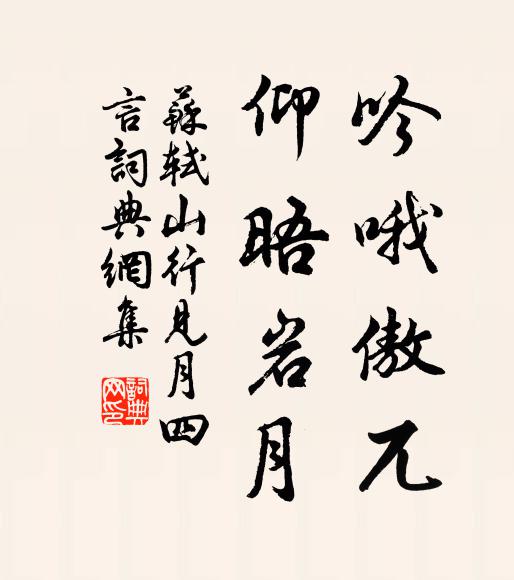 吟哦傲兀
仰晤岩月
蘇軾山行見月四
言詞典網集
詞典
网印